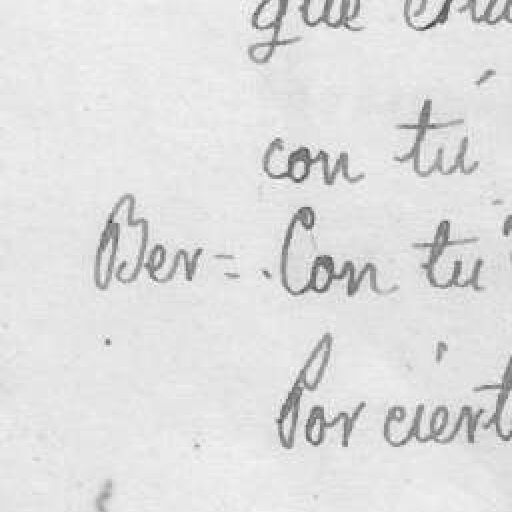 que
con tú
Ber= . Con tu
Por ciert